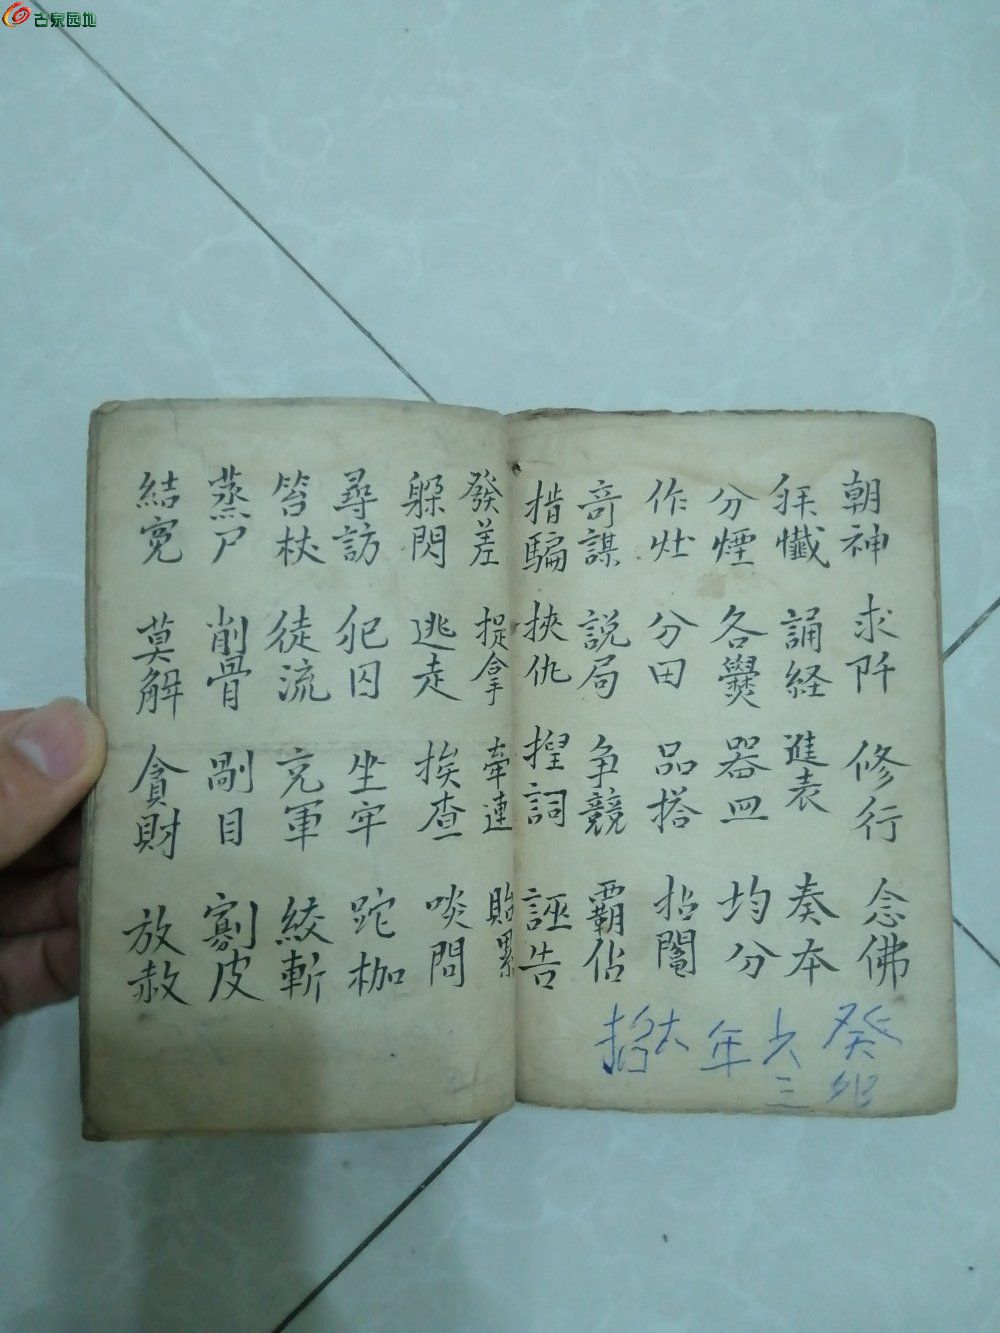 古泉园地
朝神 求阡 修行 念佛
拜懺 誦経 進表 奏本
分煙 各爨 器皿 均分
作灶 分田 品搭 拈鬮
奇謀 説局 争競 覇佔
揩騙 挾仇 捏詞 誣告
發差 捉拿 牽連 貽累
躱閃 逃走 挨查 啖問
尋訪 犯囚 坐牢 跎枷
笞杖 徒流 充軍 絞斬
蒸尸 削骨 剮目 劉皮
結寃 莫解 貪財 放赦
癸卯
六三
年